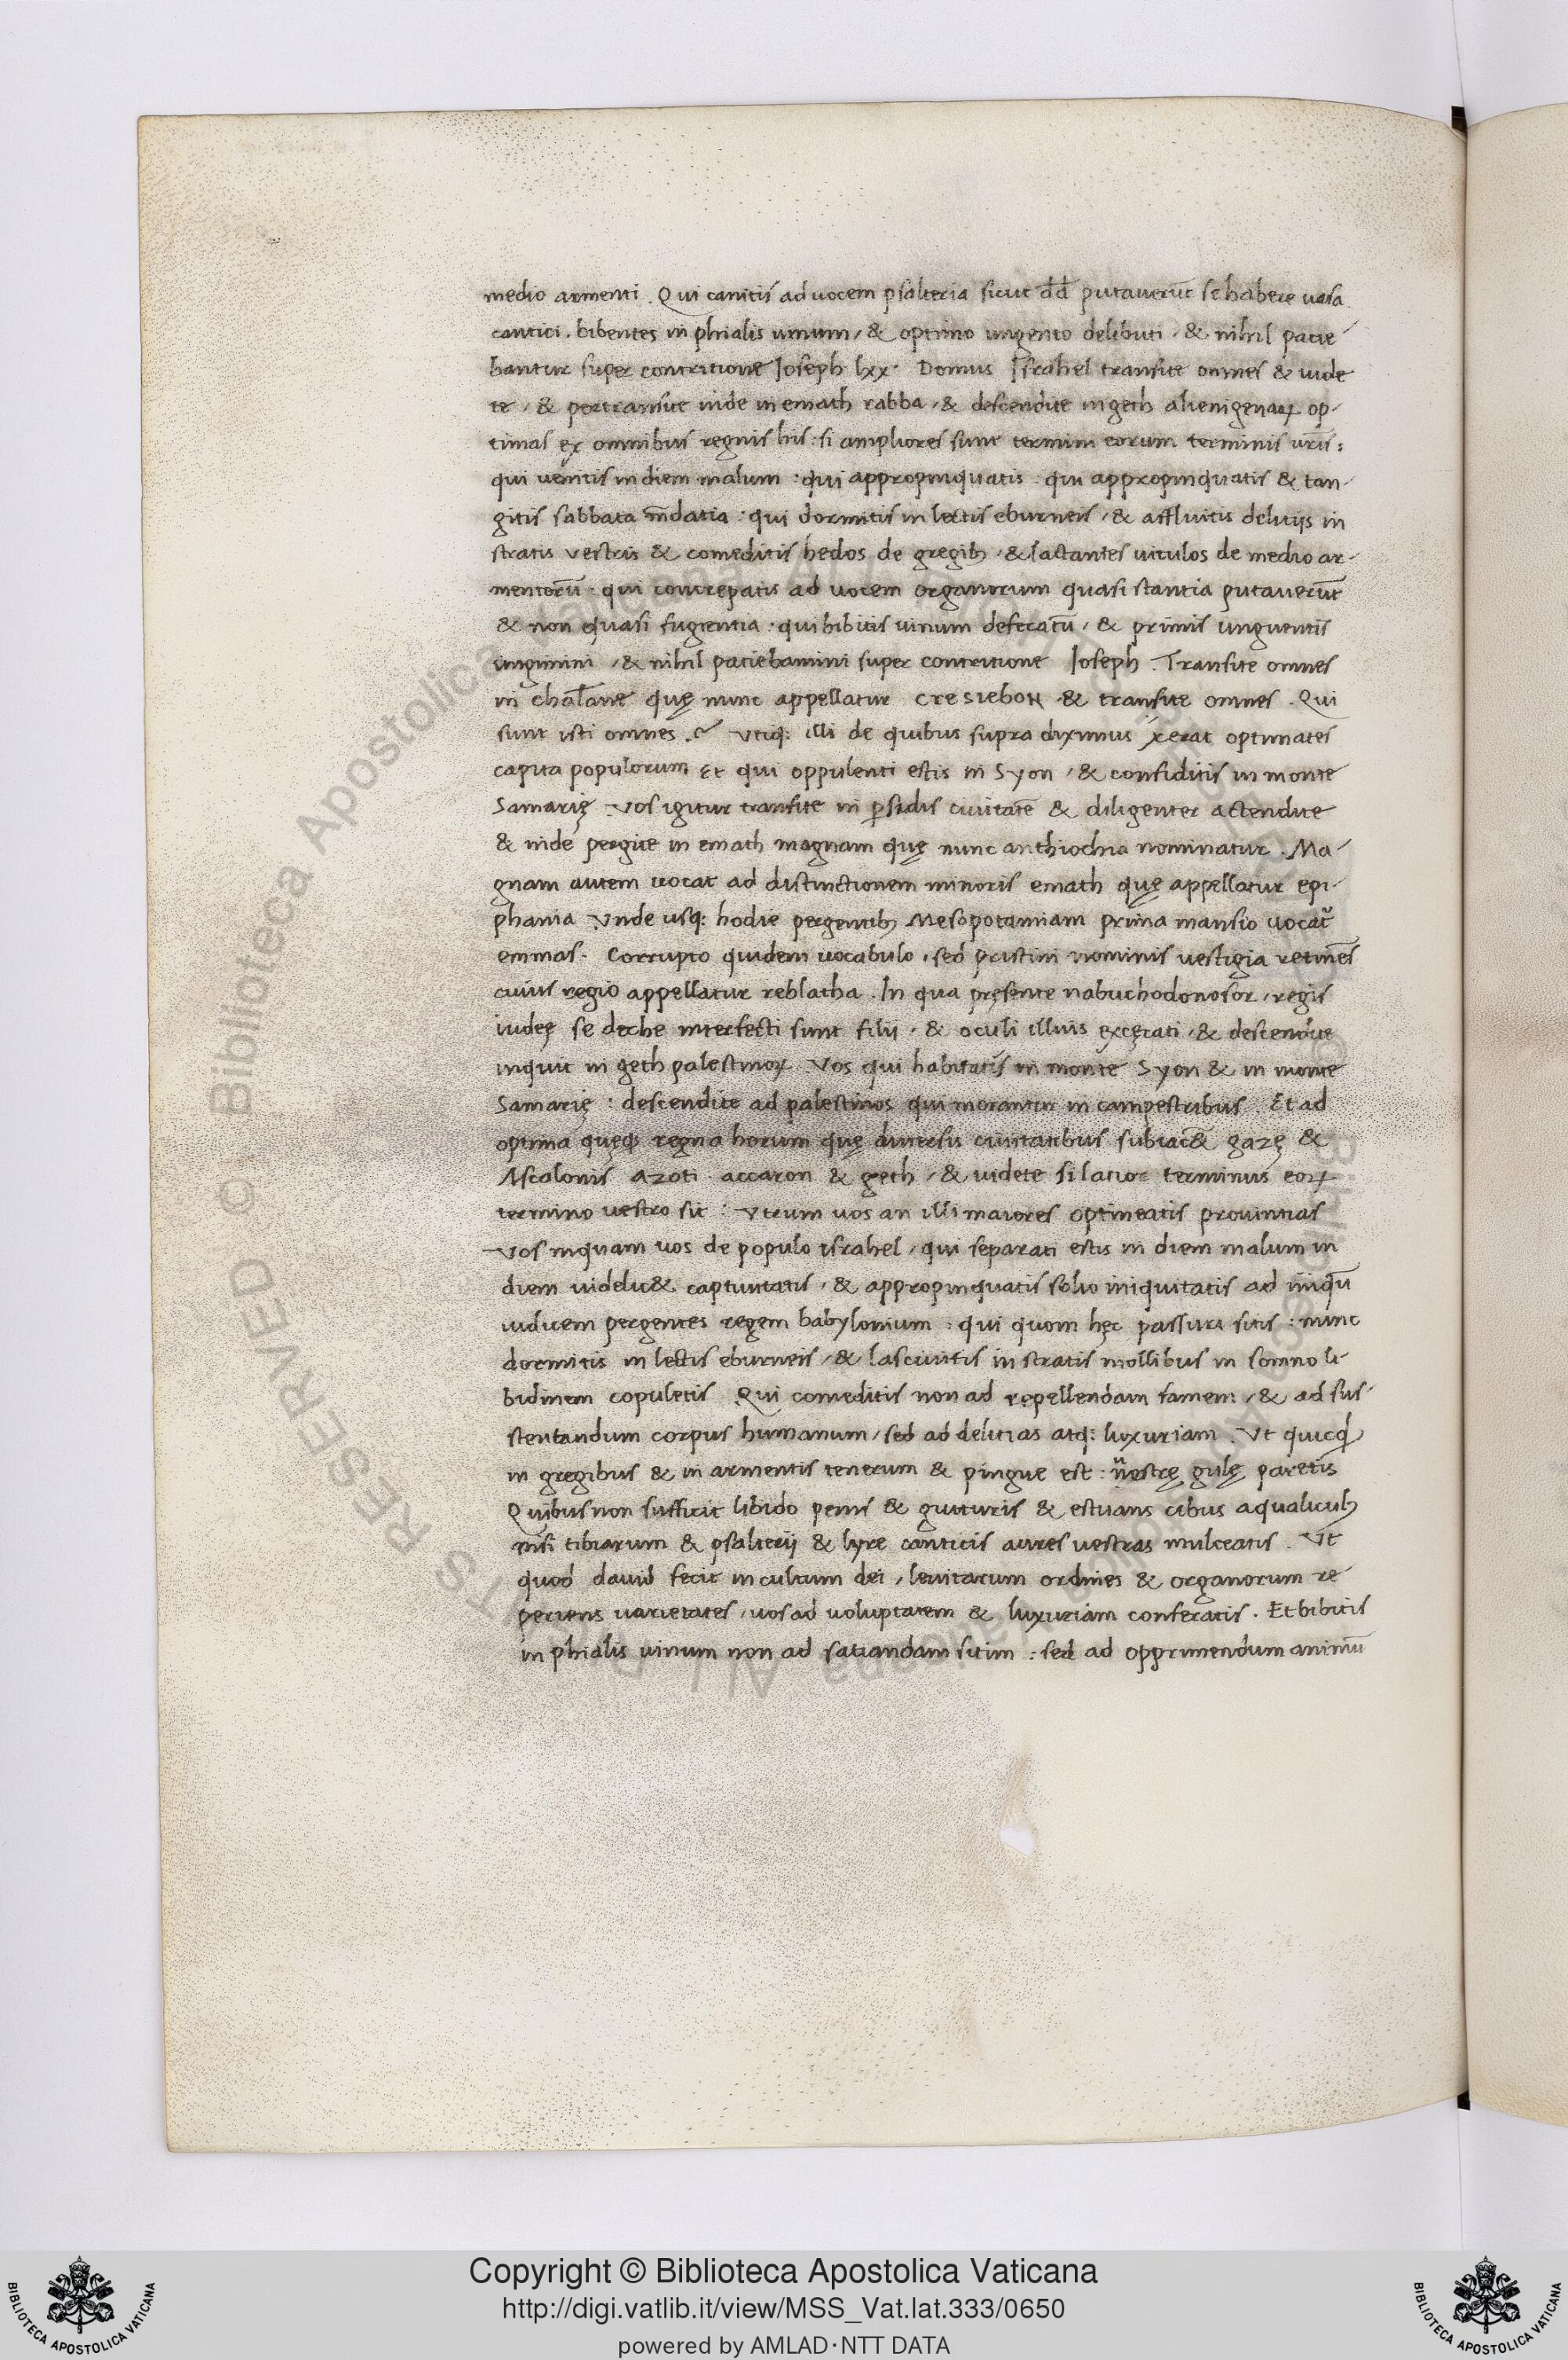 medio armenti. Qui canitis ad uocem psalteria sicut dd̄ putauerūt se habere uasa
cantici. bibentes in phialis uinum, & optimo ungento delibuti, & nihil patie-
bantur super contritione Ioseph lxx. Domus Israhel transite omnes & uide
te, & pertransite inde in emath rabba, & descendite in geth alienigenaꝝ op-
timas ex omnibus regnis his: si ampliores sunt termini eorum terminis uris̄:
qui uenitis in diem malum: qui appropinquatis: qui appropinquatis & tan-
gitis sabbata m̄datia: qui dormitis in lectis eburneis, & affluitis delitijs in
stratis vestris & comeditis hedos de gregibꝫ, & lactantes uitulos de medio ar-
mentorū: qui concrepatis ad uocem organorum quasi stantia putauerūt
& non quasi fugientia: qui bibitis uinum defecatū, & primis unguentis
ungimini, & nihil patiebamini super contritione Ioseph. Transite omnes
in chalane quę nunc appellatur cresiebon & transite omnes. Qui
sunt isti omnes? Vtiq: illi de quibus supra diximus xerat optimates
capita populorum Et qui oppulenti estis in Syon, & confiditis in monte
Samarię. Vos igitur transite in ꝑsidis ciuitatē & diligenter actendite
& inde pergite in emath magnam quę nunc anthiochia nominatur. Ma-
gnam autem uocat ad distinctionem minoris emath quę appellatur epi-
phania Vnde usq: hodie pergentibꝫ Mesopotamiam prima mansio uocat᷑
emmas. Corrupto quidem uocabulo, sed pristini nominis uestigia retinēs
cuius regio appellatur reblatha. In qua pręsente nabuchodonosor, regis
iudeę se deche interfecti sunt filij, & oculi illius excęcati, & descendite
inquit in geth palestinoꝝ. Vos qui habitatis in monte Syon & in monte
Samarię: descendite ad palestinos qui morantur in campestribus. Et ad
optima quęqꝫ regna horum quę diuersis ciuitatibus subiac& gazę &
Ascalonis azoti. accaron & geth, & uidete si latior terminus eoꝝ
termino uestro sit: Vtrum uos an illi maiores optineatis prouintias
Vos inquam uos de populo israhel, qui separati estis in diem malum in
diem uidelic& captiuitatis, & appropinquatis solio iniquitatis ad iniqū
iudicem pergentes regem babylonium: qui quom hęc passuri sitis: nunc
dormitis in lectis eburneis, & lasciuitis in stratis mollibus in somno li-
bidinem copuletis. Qui comeditis non ad repellendam famem, & ad sus-
stentandum corpus humanum, sed ad delitias atq: luxuriam. Vt quicqd
in gregibus & in armentis tenerum & pingue est: uestrę gulę paretis
Quibus non sufficit libido penis & gutturis & estuans cibus aqualiculꝫ
nisi tibiarum & psalterij & lyre canticis aures uestras mulceatis. Vt
quod dauid fecit in cultum dei, leuitarum ordines & organorum re
periens uarietates, uos ad uoluptatem & luxuriam conferatis. Et bibitis
in phialis uinum non ad satiandam sitim: sed ad opprimendum animū
Copyright © Biblioteca Apostolica Vaticana
http://digi.vatlib.it/view/MSS_Vat.lat.333/0650
powered by AMLAD·NTT DATA
BIBLIOTECA APOSTOLICA VATICANA
BIBLIOTECA APOSTOLICA VATICANA